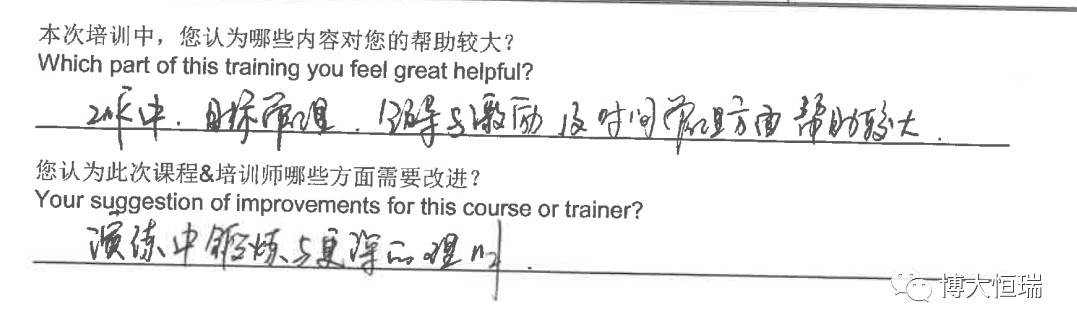 本次培训中，您认为哪些内容对您的帮助较大？
Which part of this training you feel great helpful?
工作中、目标管理、领导与激励及时间管理方面帮助较大.
您认为此次课程&培训师哪些方面需要改进？
Your suggestion of improvements for this course or trainer?
演练中锻炼与更深的理
博大恒瑞